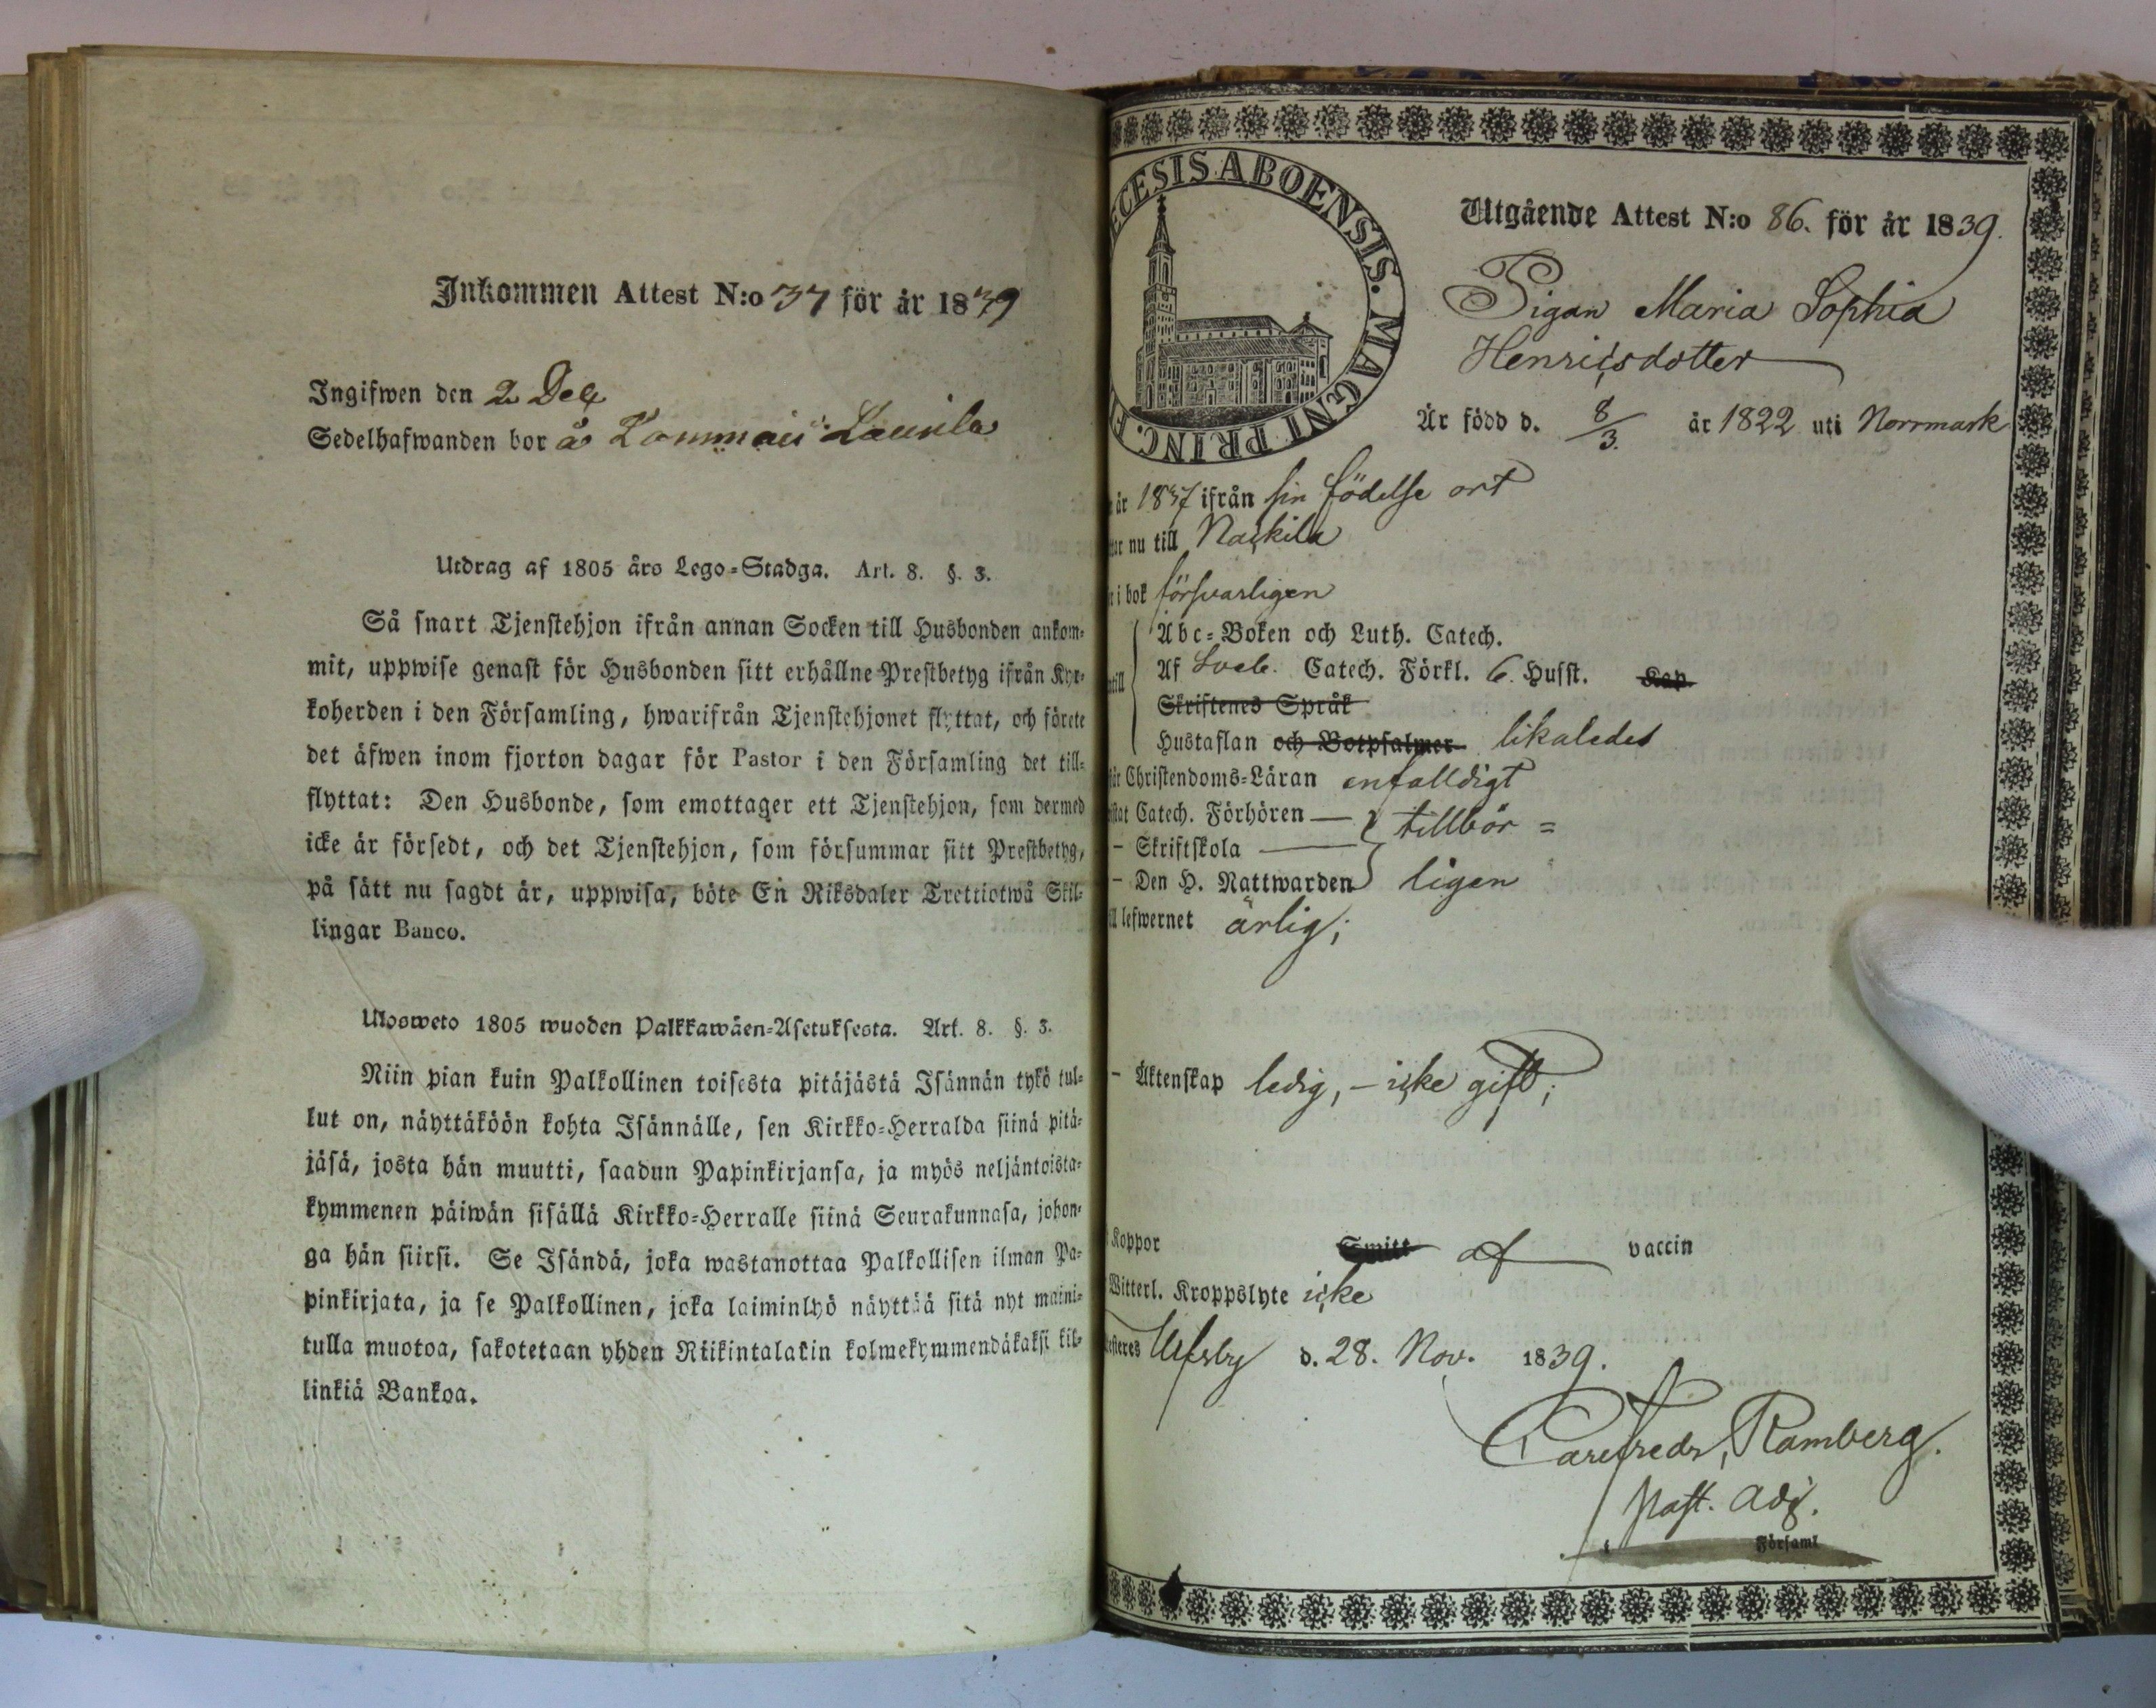 Inkommen Attest N:o 37 för år 1839
Ingifwen den 2 Dec
Sedelhafwanden bor å
Utdrag af 1805 års Lego=Stadga. Art. 8. §. 3.
Så snart Tjenstehjon ifrån annan Socken till Husbonden ankom=
mit, uppwise genast för Husbonden sitt erhållne Prestbetyg ifrån Kyr=
koherden i den Församling, hwarifrån Tjenstehjonet flyttat, och förete
det äfwen inom fjorton dagar för Pastor i den Församling det till=
flyttat: Den Husbonde, som emottager ett Tjenstehjon, som dermed
icke är försedt, och det Tjenstehjon, som försummar sitt Prestbetyg,
på sätt nu sagdt är, uppwisa, böte En Riksdaler Trettiotwå Skil=
lingar Banco.
Ulosweto 1805 wuoden Palkkawäen=Asetuksesta. Art. 8. §. 3.
Niin pian kuin Palkollinen toisesta pitäjästä Isännän tykö tul=
lut on, näyttäköön kohta Isännälle, sen Kirkko=Herralda siinä pitä=
jäsä, josta hän muutti, saadun Papinkirjansa, ja myös neljäntoista=
kymmenen päiwän sisällä Kirkko=Herralle siinä Seurakunnasa, johon=
ga hän siirsi. Se Isändä, joka wastanottaa Palkollisen ilman Pa=
pinkirjata, ja se Palkollinen, joka laiminlyö näyttää sitä nyt maini=
tulla muotoa, sakotetaan yhden Riikintalarin kolmekymmendäkaksi kil=
linkiä Bankoa.
ECESIS ABOENSIS. MAGNI PRINC. F
Utgående Attest N:o 86. för år 1839.
Pigan Maria Sophia
Henricsdotter
Är född d. 8/3. år 1822 uti Norrmark
år 1837 ifrån sin födelse ort
nu till Nackila
i bok försvarligen
Abc=Boken och Luth. Catech.
Af Sveb. Catech. Förkl. 6. Husst. Kap.
Skriftenes Språk
Hustaflan och Botpsalmer likaledes
Christendoms=Läran enfalldigt
Catech. Förhören — } tillbör =
– Skriftskola —
– Den H. Nattwarden } ligen
lefwernet ärlig;
– Äktenskap ledig, – icke gift;
Koppor Smitt af vaccin
Witterl. Kroppslyte icke
Ulfsby d. 28. Nov. 1839.
Carl Fredr. Ramberg.
Past. Adj.
Församl